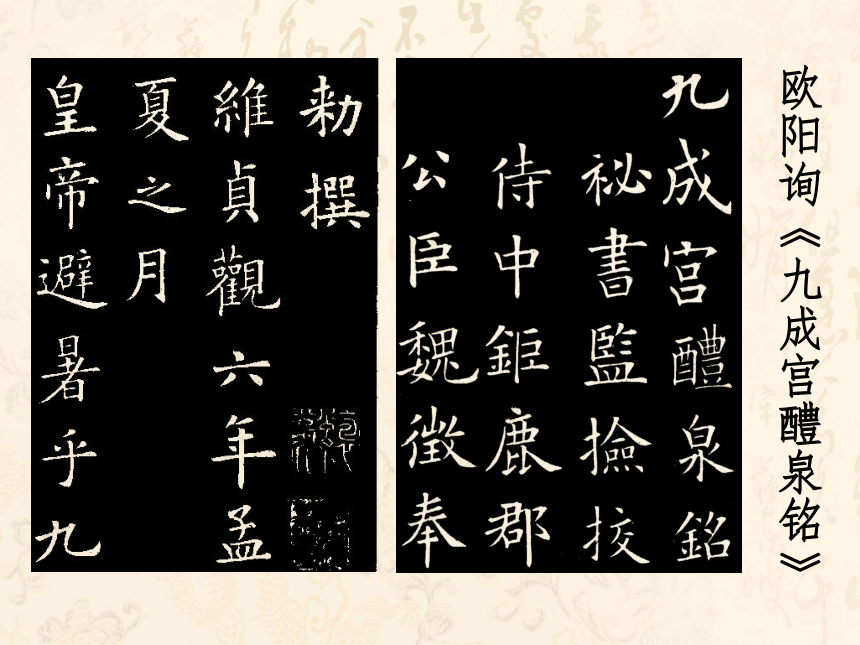 欧阳询《九成宫醴泉铭》
九成宫醴泉銘
祕書監撿挍
侍中鉅鹿郡
公臣魏徵奉
勑撰
維貞觀六年孟
夏之月
皇帝避暑乎九